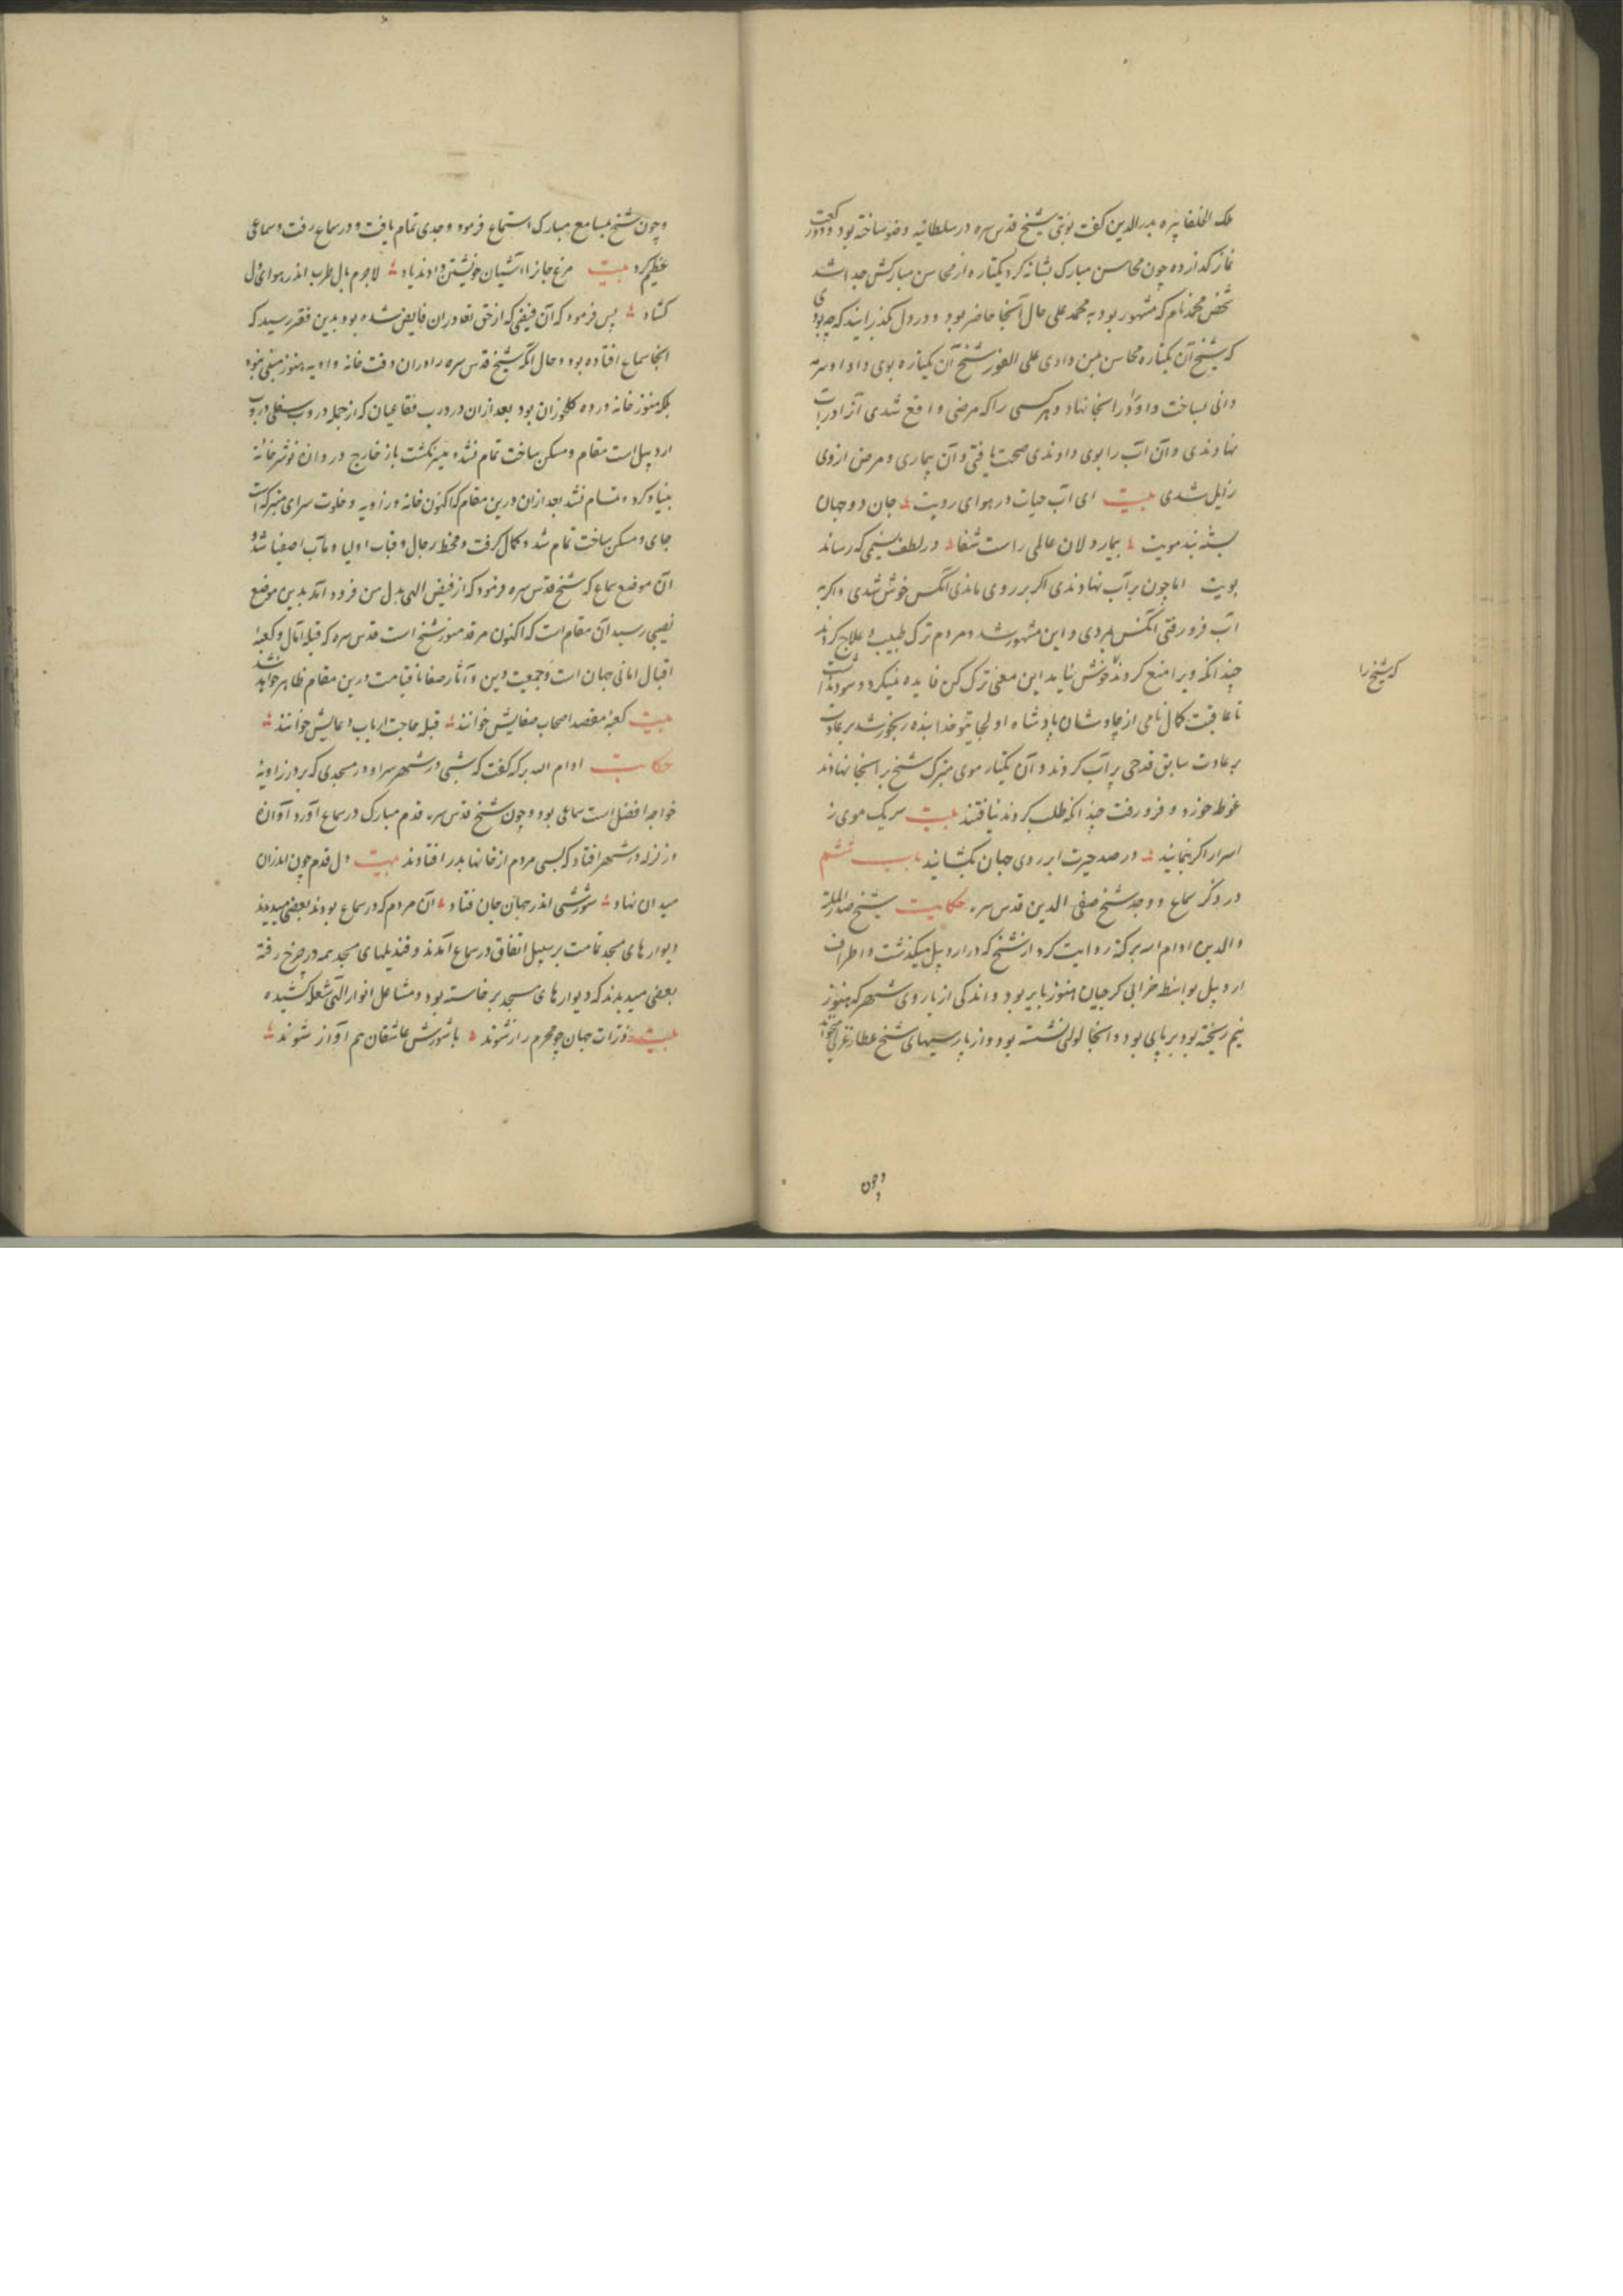 ملک الخلفا پیره بدرالدین کفت نوبتی شیخ قدس سره در سلطانیه وضو ساخته بود و دو رکعت
نماز کذارده چون محاسن مبارک بشانه کرد یکتاره از محاسن مبارکش جدا شد
شخص محمد نام که مشهور بود به محمد علی حال آنجا حاضر بود و در دل بکذرانید که چه بودی
که شیخ آن یکتاره محاسن بمن دادی علی الفور شیخ آن یکتاره بوی داد او سرمه
دانی بساخت و او را در آنجا نهاد و هر کسی را که مرضی واقع شدی آنرا در آب
نهادندی و آن آب را بوی دادندی صحت یافتی و آن بیماری و مرض از وی
زایل شدی بیت ای آب حیات در هوای رویت جان دو جهان
بسته بند مویت بیمار دلان عالمی راست شفا در لطف نسیمی که رساند
بویت اما چون بر آب نهادندی اکر بر روی ماندی آنکس خوش شدی و اکر به
آب فرو رفتی آنکس بمردی و این مشهور شد و مردم ترک طبیب و علاج کردند
چندانکه ویرا منع کردند خوش نیاید این معنی ترک کن فایده نمیکرد و سود نداشت
که شیخ را
تا عاقبت کمال نامی از چاوشان پادشاه اولجایتو خدابنده رنجور شد بر عادت
بر عادت سابق قدحی پر آب کردند و آن یکتار موی متبرک شیخ بر آنجا نهادند
غوطه خورد و فرو رفت چندانکه طلب کردند نیافتند بیت سر یک موی ز
اسرار اکر بنمایند در صد حیرت ابر روی جهان بکشایند باب ششم
در ذکر سماع و وجد شیخ صفی الدین قدس سره حکایت شیخ صدر الملة
والدین ادام الله برکته روایت کرد از شیخ که در اردبیل میکذشت و اطراف
اردبیل بواسطه خرابی کرجیان هنوز بایر بود و اندکی از باروی شهر که هنوز
نیم ریخته بود بر پای بود و آنجا لولی نشسته بود و از پارسیهای شیخ عطار غزلی میخواند
وچون
و چون شیخ بمسامع مبارک استماع فرمود وجدی تمام یافت و در سماع رفت و سماعی
عظیم کرد بیت مرغ جانرا آشیان خویشتن دادند یاد لاجرم بال طرب اندر هوای دل
کشاد پس فرمود که آن فیضی که از حق تعا در ان فایض شده بود بدین فقر رسید که
آنجا سماع افتاده بود و حال آنکه شیخ قدس سره را در ان وقت خانه و زاویه هنوز مبنی نبود
بلکه هنوز خانه در ده کلخوران بود بعد از ان در درب فقاعیان که از جمله دروب سفلی دروب
اردبیل است مقام و مسکن ساخت تمام نشد میسر نکشت باز خارج دروازه نوشهر خانه
بنیاد کرد و تمام نشد بعد از ان درین مقام که اکنون خانه و زاویه و خلوت سرای متبرک است
جای و مسکن ساخت تمام شد و کمال کرفت و محط رجال و قباب اولیا و مآب اصفیا شد و
آن موضع سماع که شیخ قدس سره فرمود که از فیض الهی بدل من فرود آمد بدین موضع
نصیبی رسید آن مقام است که اکنون مرقد منور شیخ است قدس سره که قبله آمال و کعبه
اقبال امانی جهان است و جمعیت دین و آثار صفا تا قیامت درین مقام ظاهر خواهد شد
بیت کعبه مقصد اصحاب صفایش خوانند قبله حاجت ارباب دعایش خوانند
حکایت ادام الله برکته کفت که شبی در شهر سراو در مسجدی که بر در زاویه
خواجه افضل است سماعی بود و چون شیخ قدس سره قدم مبارک در سماع آورد آوازه
و زلزله در شهر افتاد که بسی مردم از خانها بدر افتادند بیت دل قدم چون اندران
میدان نهاد شورشی اندر جهان جان فتاد آن مردم که در سماع بودند بعضی میدیدند
دیوارهای مسجد تمامت بر سبیل اتفاق در سماع آمدند و قندیلهای مسجد همه در چرخ رفته
بعضی میدیدند که دیوارهای مسجد برخاسته بود و مشاعل انوار الهی شعله کشیده
بیت ذرات جهان چو محرم راز شوند با شورش عاشقان هم آواز شوند